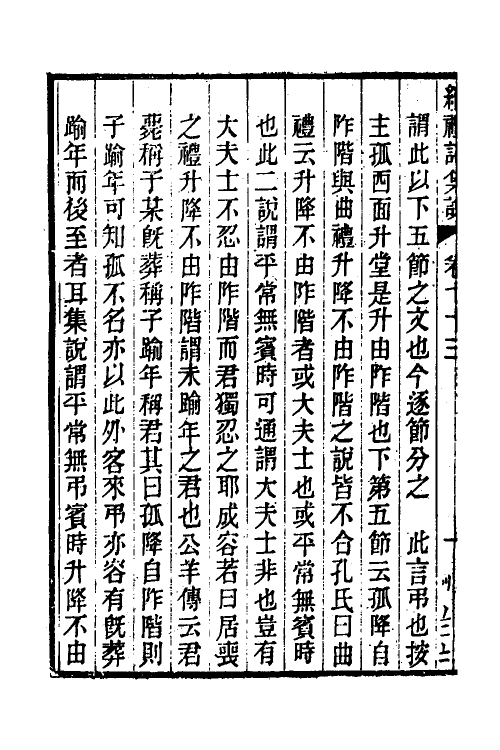 續禮記集說 卷七十三
謂此以下五節之文也今逐節分之 此言弔也按
主孤西面升堂是升由阼階也下第五節云孤降自
阼階與曲禮升降不由阼階之說皆不合孔氏曰曲
禮云升降不由阼階者或大夫士也或平常無賓時
也此二說謂平常無賓時可通謂大夫士非也豈有
大夫士不忍由阼階而君獨忍之耶成容若曰居喪
之禮升降不由阼階謂未踰年之君也公羊傳云君
薨稱子某旣葬稱子踰年稱君其曰孤降自阼階則
子踰年可知孤不名亦以此外客來弔亦容有旣葬
踰年而後至者耳集說謂平常無弔賓時升降不由